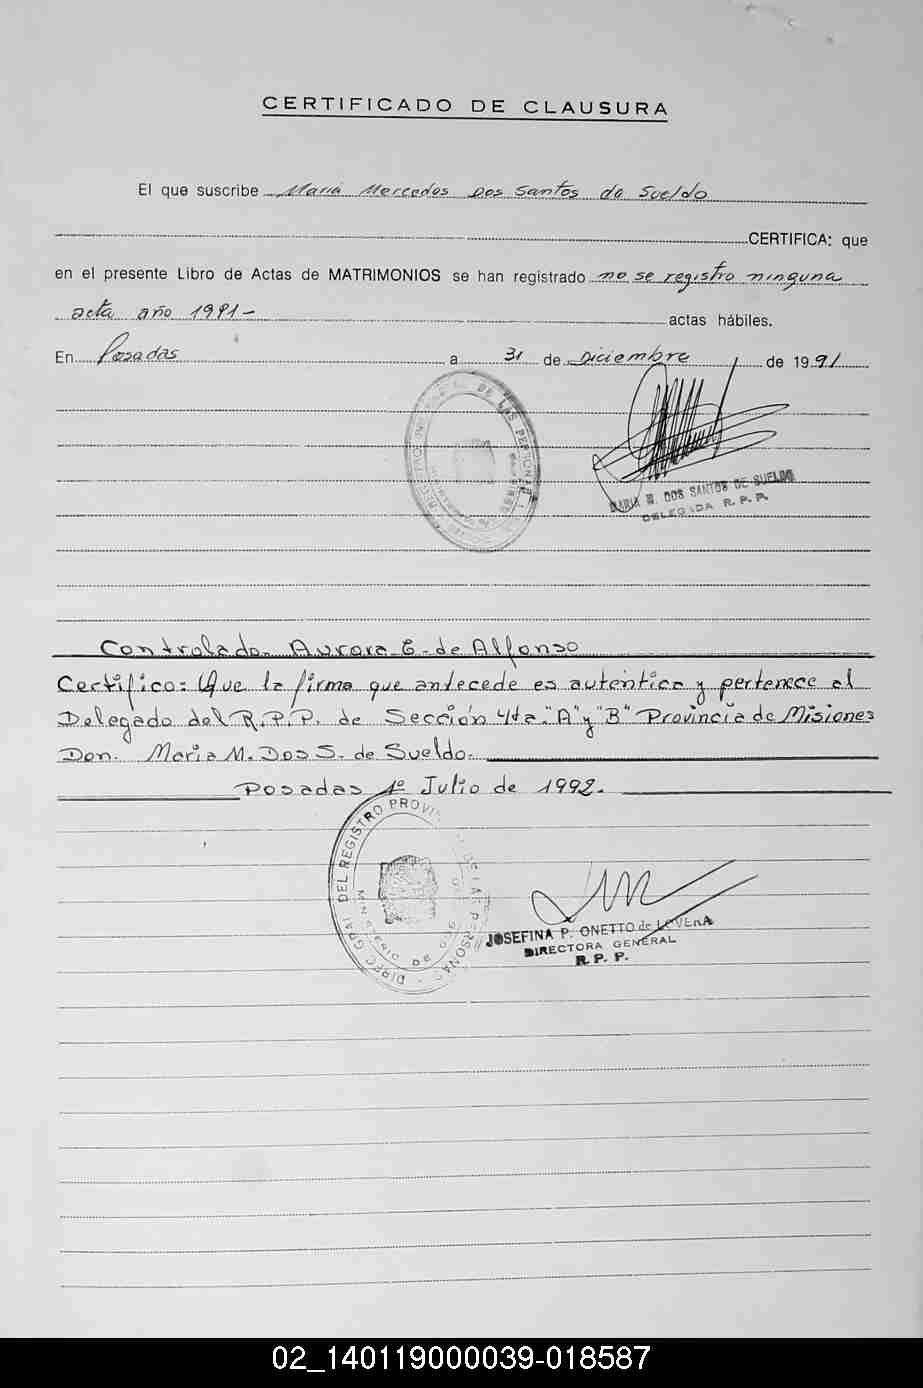 CERTIFICADO DE CLAUSURA
El que suscribe Maria Mercedes Dos Santos de Sueldo
CERTIFICA: que
en el presente Libro de Actas de MATRIMONIOS se han registrado no se registro ninguna
acta año 1991- actas hábiles.
En Posadas a 31 de Diciembre de 1991
MARIA M. DOS SANTOS DE SUELDO
DELEGADA R. P. P.
Controlado. Aurora E. de Alfonso
Certifico: Que la firma que antecede es autentica y pertenece al
Delegado del R.P.P. de Sección 4ta. "A" y "B" Provincia de Misiones
Don. Maria M. Dos S. de Sueldo.
Posadas 1º Julio de 1992.
DIREC. GRAL. DEL REGISTRO PROVINCIAL DE LAS PERSONAS
JOSEFINA P. ONETTO de LOVERA
DIRECTORA GENERAL
R. P. P.
02_140119000039-018587